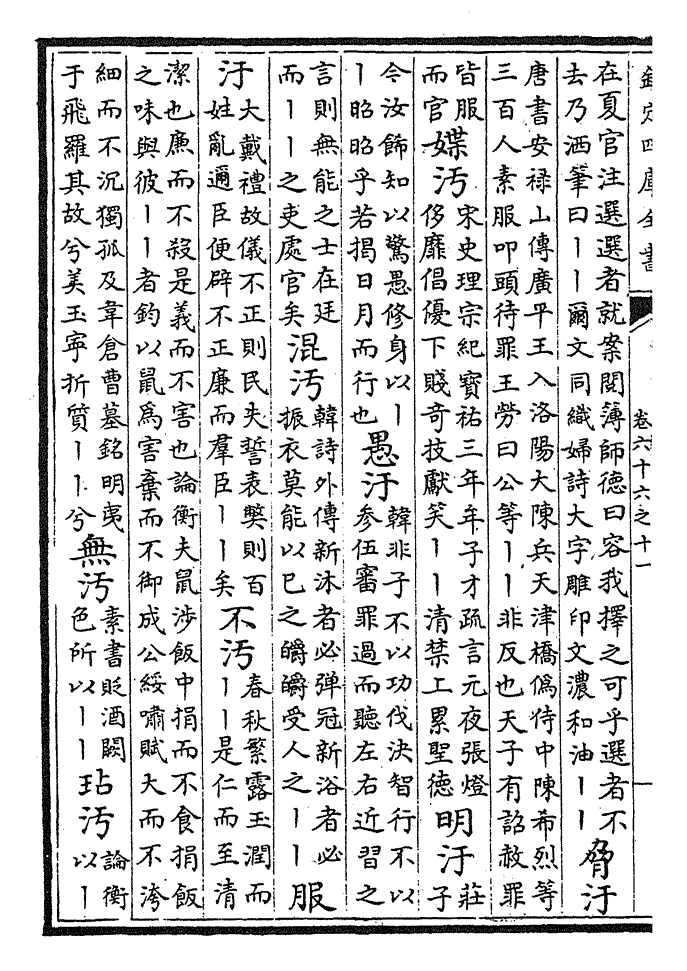 欽定四庫全書
卷六十六之十一
在夏官注選選者就案閱簿師德曰容我擇之可乎選者不
去乃洒筆曰丨丨爾文同織婦詩大字雕印文濃和油丨丨
脅汙
唐書安禄山傳廣平王入洛陽大陳兵天津橋偽侍中陳希烈等
三百人素服叩頭待罪王勞曰公等丨丨非反也天子有詔赦罪
皆服
而官
媟汚
宋史理宗紀寶祐三年牟子才疏言元夜張燈
侈靡倡優下賤奇技獻笑丨丨清禁上累聖德
明汙
莊
子
今汝飾知以驚愚修身以丨
丨昭昭乎若揭日月而行也
愚汙
韓非子不以功伐決智行不以
參伍審罪過而聽左右近習之
言則無能之士在廷
而丨丨之吏處官矣
混汚
韓詩外傳新沐者必彈冠新浴者必
振衣莫能以已之皭皭受人之丨丨
服
汙
大戴禮故儀不正則民失誓表獘則百
姓亂邇臣便辟不正廉而羣臣丨丨矣
不汚
春秋繁露玉潤而
丨丨是仁而至清
潔也廉而不殺是義而不害也論衡夫鼠涉飯中捐而不食捐飯
之味與彼丨丨者鈞以鼠爲害棄而不御成公綏嘯賦大而不洿
細而不沉獨孤及韋倉曹墓銘明夷
于飛羅其故兮美玉寧折質丨丨兮
無汚
素書貶酒闕
色所以丨丨
玷汚
論衡
以丨